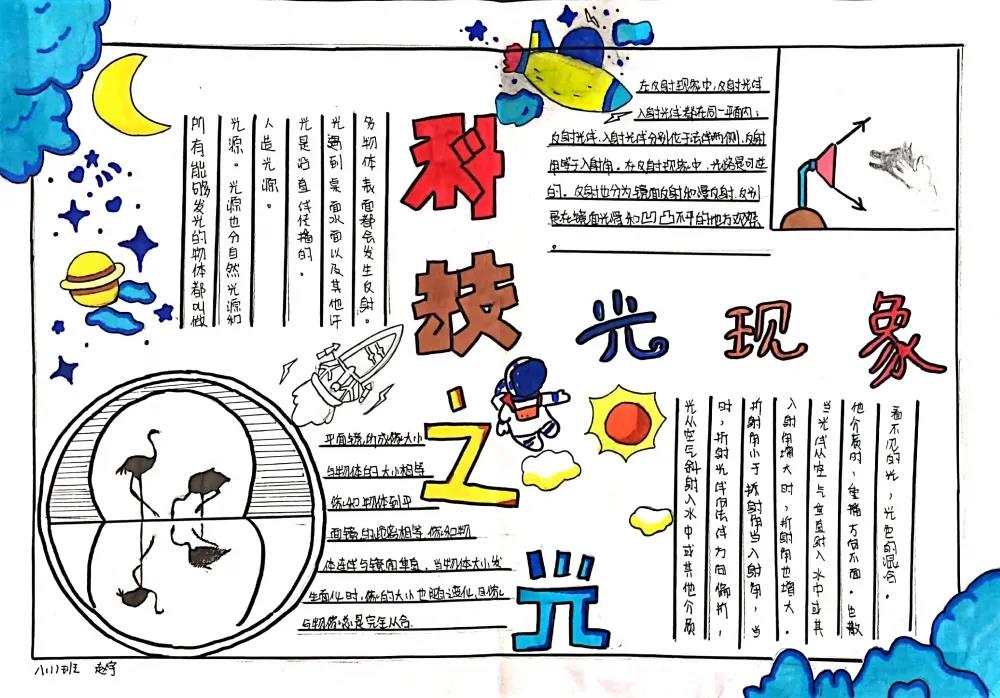 科技之光
光现象
所有能够发光的物体都叫做
光源。光源也分自然光源和
人造光源。
光是沿直线传播的。
光遇到桌面水面以及其他许
多物体表面都会发生反射。
在反射现象中,反射光线
入射光线都在同一平面内;
反射光线、入射光线分别位于法线两侧,反射
角等于入射角。在反射现象中,光路是可逆
的。反射也分为镜面反射和漫反射.
是在镜面光滑和凹凸不平的地方观察
。
平面镜所成像大小
与物体的大小相等
像和物体到平
面镜的距离相等 像和物
体连线与镜面垂直.当物体大小发
生变化时,像的大小也随之变化,且像
与物像总是完全从合.
光从空气斜射入水中或其他介质
时,折射光线向法线方向偏折,
折射角小于折射角当入射角,当
入射角增大时,折射角也增大。
当光线从空气垂直射入水中或其
他介质时,传播方向不面。色散
看不见的光,光色的混合。
八(1)班 赵宇